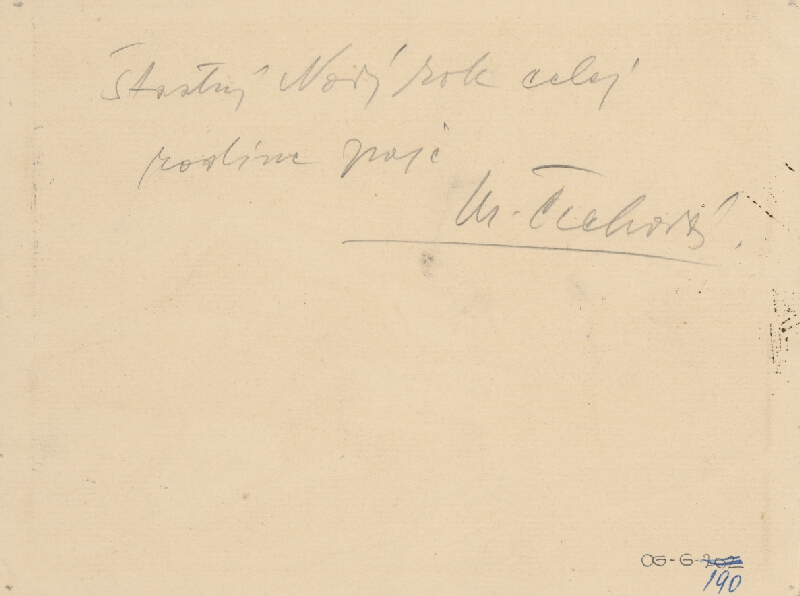 Štastný Nový rok celej
rodine praje
M. Čechová.
OG-G-202
190